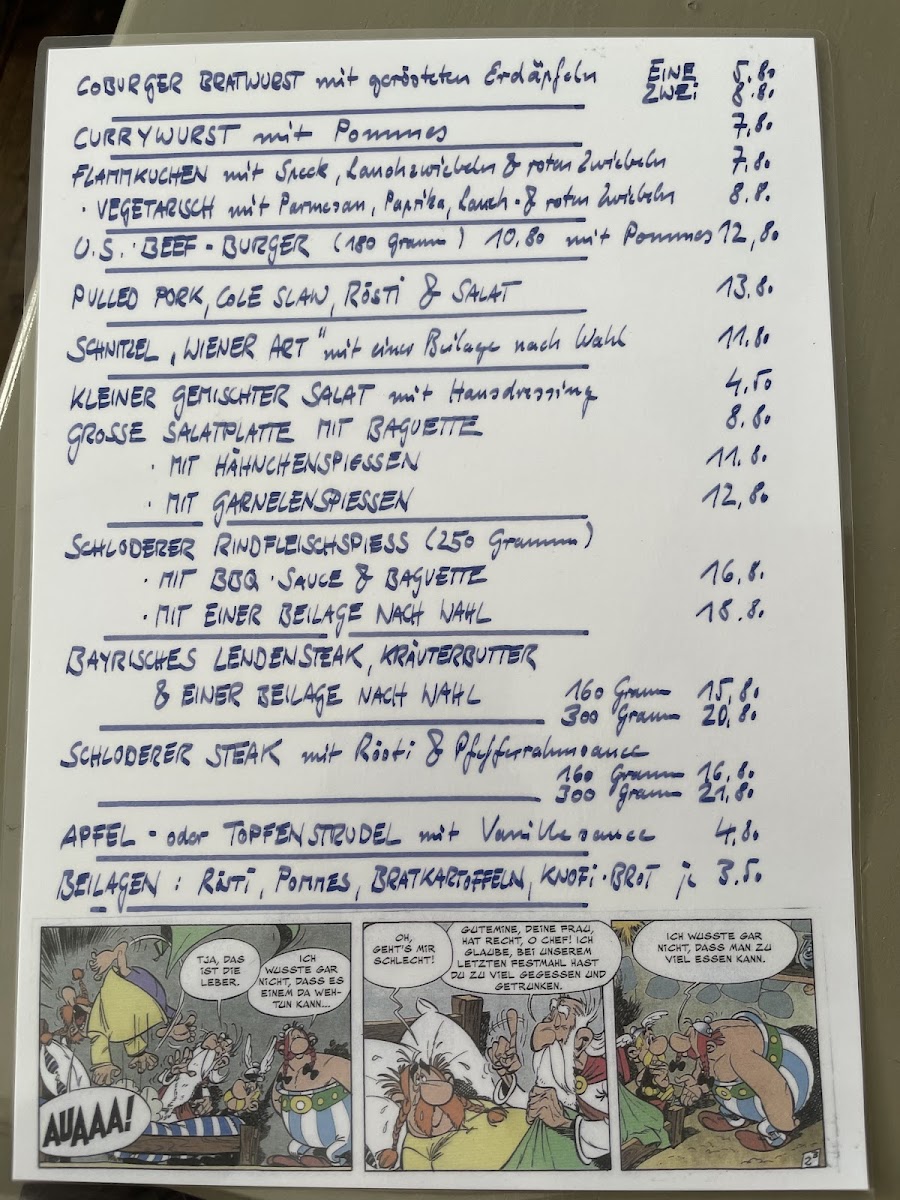 COBURGER BRATWURST mit gerösteten Erdäpfeln EINE 5.80
ZWEI 8.80
CURRYWURST mit Pommes 7,80
FLAMMKUCHEN mit Speck, Lauchzwiebeln & roten Zwiebeln 7.80
· VEGETARISCH mit Parmesan, Paprika, Lauch- & roten Zwiebeln 8.80
U.S. BEEF-BURGER (180 gramm) 10.80 mit Pommes 12,80
PULLED PORK, COLE SLAW, RÖSTI & SALAT 13.80
SCHNITZEL „WIENER ART" mit einer Beilage nach Wahl 11.80
KLEINER GEMISCHTER SALAT mit Hausdressing 4.50
GROSSE SALATPLATTE MIT BAGUETTE 8.80
· MIT HÄHNCHENSPIESSEN 11.80
· MIT GARNELENSPIESSEN 12,80
SCHLODERER RINDFLEISCHSPIESS (250 Gramm)
· MIT BBQ-SAUCE & BAGUETTE 16.80
· MIT EINER BEILAGE NACH WAHL 18.80
BAYRISCHES LENDENSTEAK, KRÄUTERBUTTER
& EINER BEILAGE NACH WAHL 160 Gramm 15,80
300 Gramm 20,80
SCHLODERER STEAK mit Rösti & Pfefferrahmsauce
160 Gramm 16.80
300 Gramm 21,80
APFEL- oder TOPFENSTRUDEL mit Vanillesauce 4,80
BEILAGEN: RÖSTI, POMMES, BRATKARTOFFELN, KNOFI-BROT je 3.50
TJA, DAS
IST DIE
LEBER.
ICH
WUSSTE GAR
NICHT, DASS ES
EINEM DA WEH-
TUN KANN...
AUAAA!
OH,
GEHT'S MIR
SCHLECHT!
GUTEMINE, DEINE FRAU,
HAT RECHT, O CHEF! ICH
GLAUBE, BEI UNSEREM
LETZTEN FESTMAHL HAST
DU ZU VIEL GEGESSEN UND
GETRUNKEN.
ICH WUSSTE GAR
NICHT, DASS MAN ZU
VIEL ESSEN KANN.